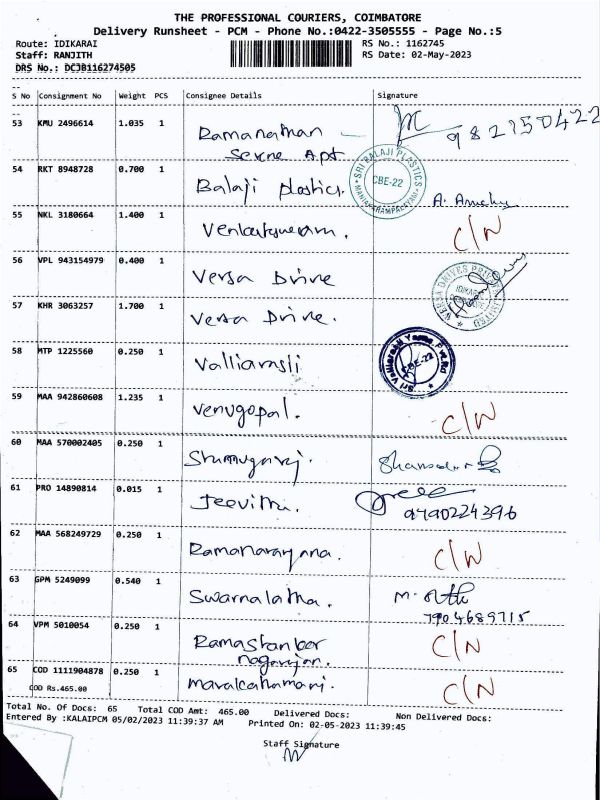 THE PROFESSIONAL COURIERS, COIMBATORE
Delivery Runsheet - PCM - Phone No.:0422-3505555 - Page No.:5
Route: IDIKARAI RS No.: 1162745
Staff: RANJITH RS Date: 02-May-2023
DRS No.: DCJB116274505
S No Consignment No Weight PCS Consignee Details Signature
53 KMU 2496614 1.035 1 Ramanathan
Serene Apt
54 RKT 8948728 0.700 1 Balaji plastics. SRI BALAJI PLASTICS CBE-22
55 NKL 3180664 1.400 1 C/N
56 VPL 943154979 0.400 1 Versa Drive
57 KHR 3063257 1.700 1 Versa Drive.
58 MTP 1225560 0.250 1 Valliarasli CBE-22
59 MAA 942860608 1.235 1 Venugopal. C/N
60 MAA 570002405 0.250 1
61 PRO 14890814 0.015 1 Jeevitha. 9790224396
62 MAA 568249729 0.250 1 Ramanarayana. C/N
63 GPM 5249099 0.540 1 Swarnalatha. 7904689715
64 VPM 5010054 0.250 1 C/N
65 COD 1111904878 0.250 1 C/N
COD Rs.465.00
Total No. Of Docs: 65 Total COD Amt: 465.00 Delivered Docs: Non Delivered Docs:
Entered By :KALAIPCM 05/02/2023 11:39:37 AM Printed On: 02-05-2023 11:39:45
Staff Signature